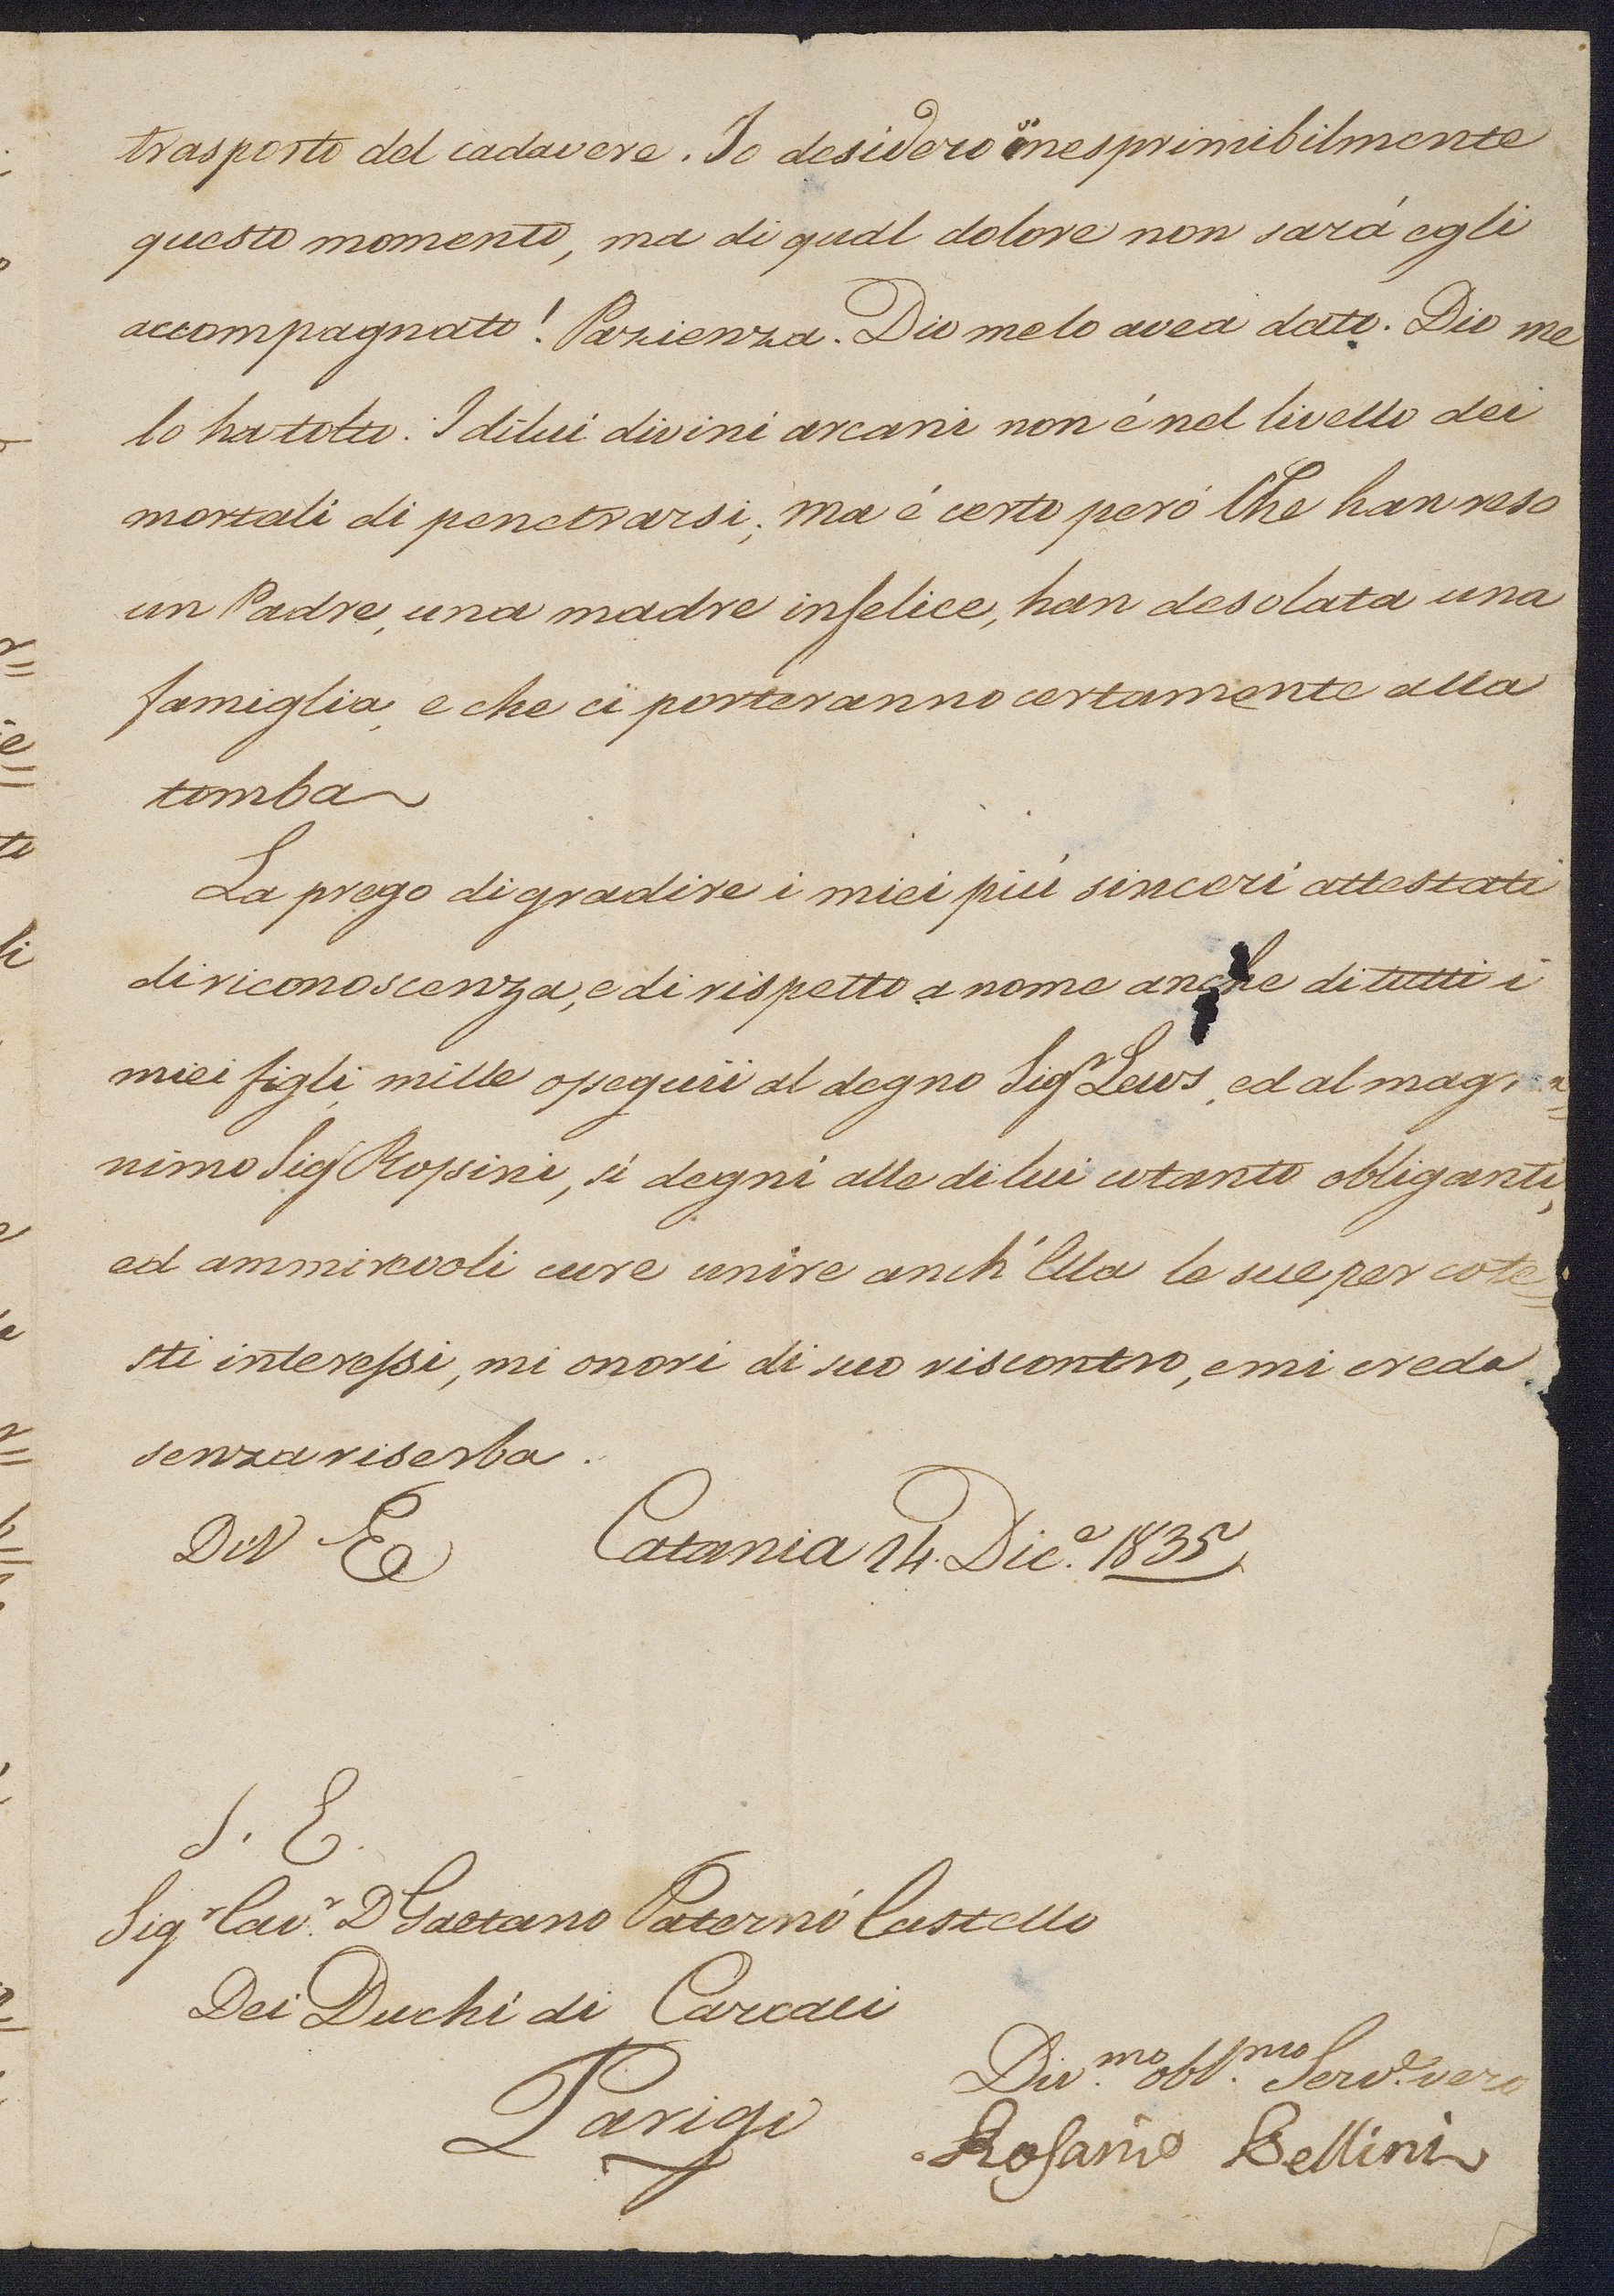 trasporto del cadavere. Io desidero inesprimibilmente
questo momento, ma di qual dolore non sará egli
accompagnato! Pazienza. Dio melo avea dato. Dio me
lo ha tolto. I dilui divini arcani non é nel livello dei
mortali di penetrarsi; ma é certo peró Che han reso
un Padre, una madre infelice, han desolata una
famiglia, e che ci porteranno certamente alla
tomba
La prego di gradire i miei piú sinceri attestati
di riconoscenza, e di rispetto a nome anche di tutti i
miei figli, mille ossequii al degno Sigr Lews, ed al magna=
nimo Sigr Rossini, si degni alle di lui cotanto obliganti,
ed ammirevoli cure unire anch'Ella le sue per cote=
sti interessi, mi onori di suo riscontro, e mi creda
senza riserba.
Di V E Catania 14. Dice. 1835
S. E.
Sigr Cavr. D Gaetano Paternó Castello
Dei Duchi di Carcaci
Parigi
Div.mo obl.mo Serve. vero
Rosario Bellini